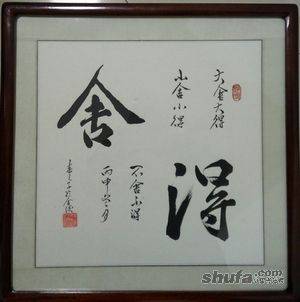 舍
得
大舍大得
小舍小得
不舍不得
丙申
shufa.com